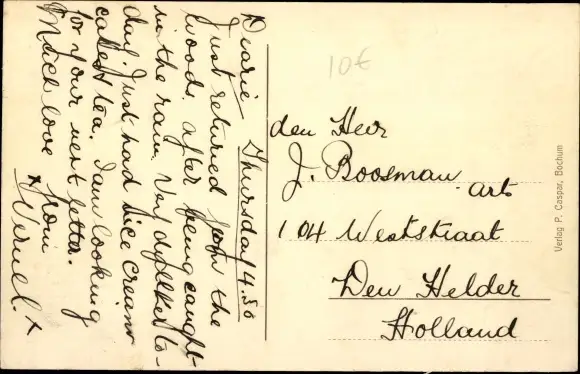 Thursday 4.50
Dearie
Just returned from the
woods, after being caught
in the rain. Very dull to-
day. Just had nice cream
cakes & tea. I am looking
for your next letter.
Much love from
x Vernel. x
10€
den Heer
J. Boosman arts
104 Weststraat
Den Helder
Holland
Verlag P. Caspar, Bochum